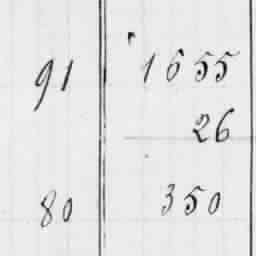 91 1655
26
80 350